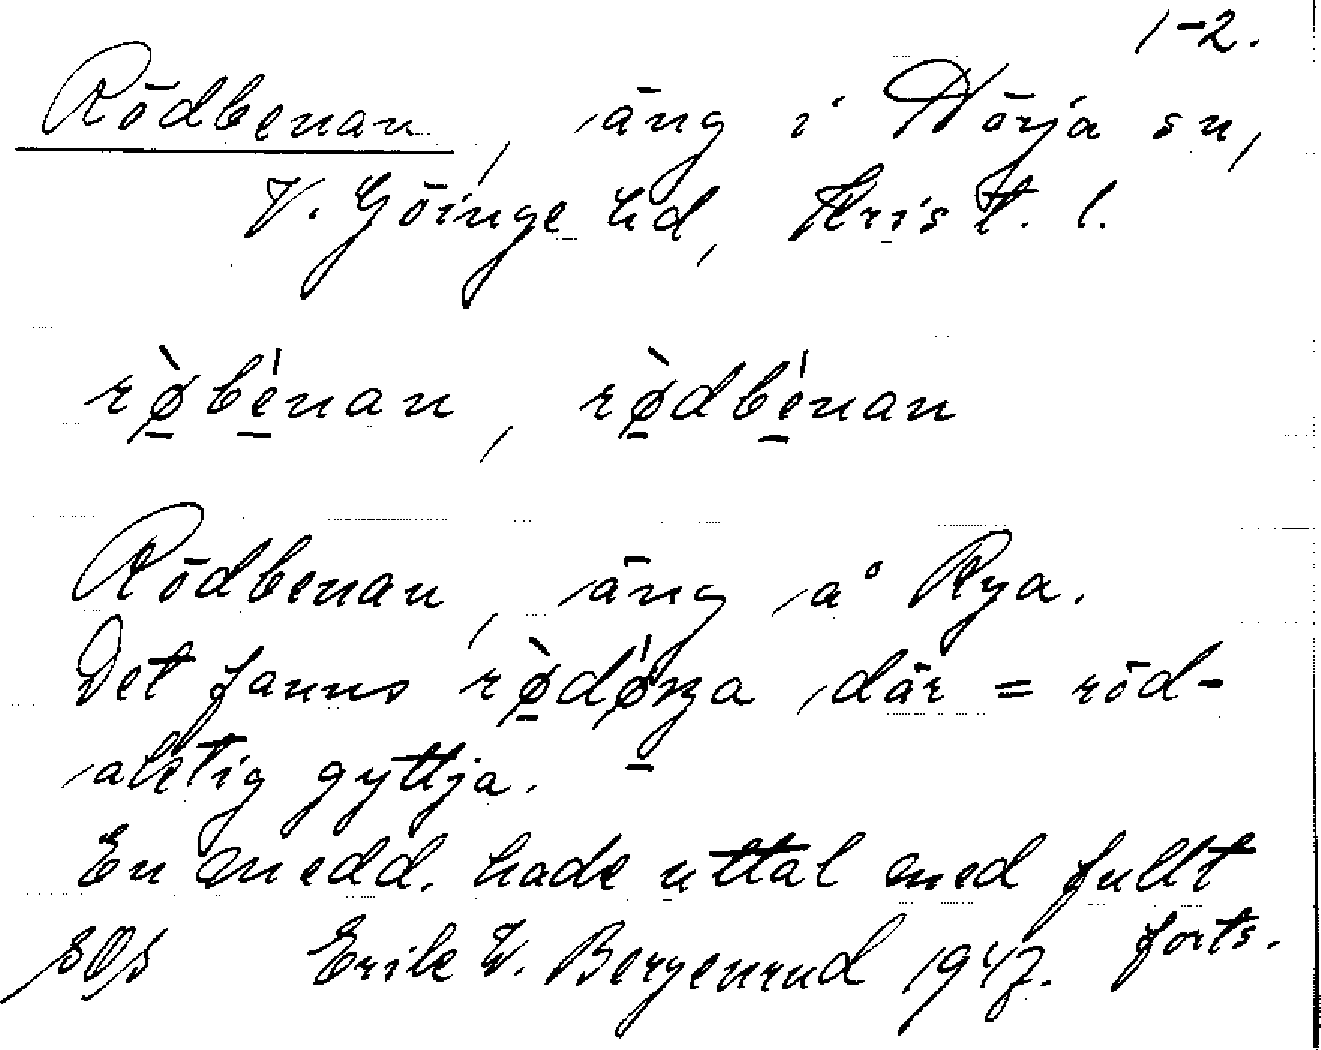 1-2.
Rödbenan, äng i Hörja sn,
V. Göinge hd, Krist. l.
rø̱̀bé̱nan, rø̱̀dbé̱nan
Rödbenan, äng å Rya.
Det fanns där = röd-
aktig gyttja.
En medd. hade uttal med fullt
forts.
Erik W. Bergenrud 1947.